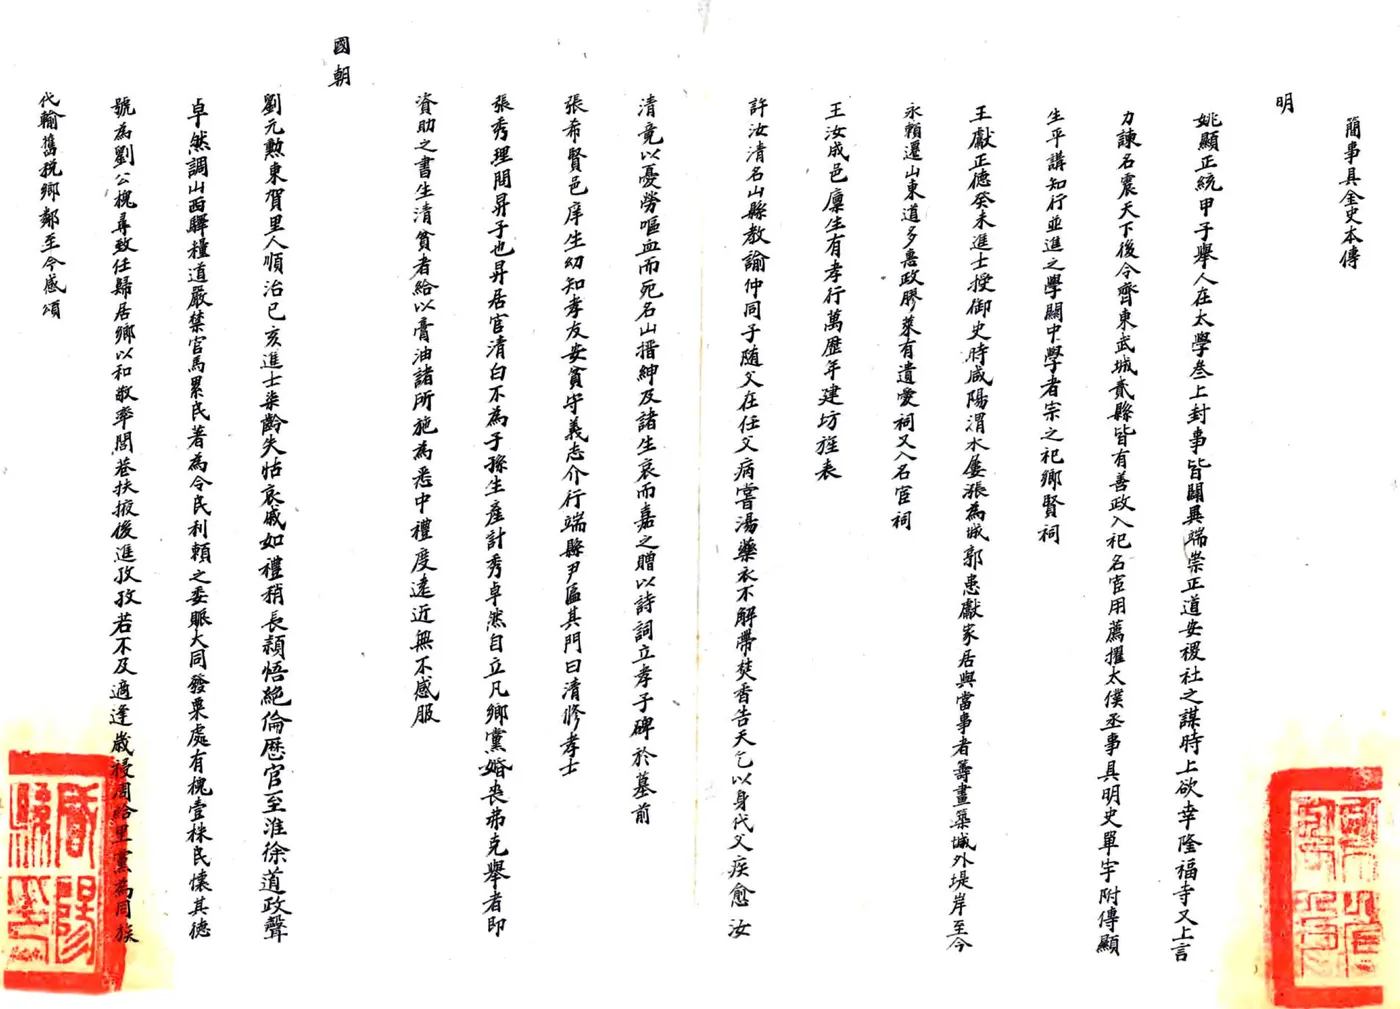 簡事具金史本傳
明
姚顯正統甲子舉人在太學叁上封事皆闢異端崇正道安稷社之謀時上欲幸隆福寺又上言
力諫名震天下後令齊東武城貳縣皆有善政入祀名宦用薦擢太僕丞事具明史單宇附傳顯
生平講知行並進之學關中學者宗之祀鄉賢祠
王獻正德癸未進士授御史時咸陽渭水屢漲為城郭患獻家居與當事者籌畫築城外堤岸至今
永賴遷山東道多惠政膠萊有遺愛祠又入名宦祠
王汝成邑廩生有孝行萬歷年建坊旌表
許汝清名山縣教諭仲同子随父在任父病嘗湯藥衣不解帶焚香告天乞以身代父疾愈汝
清竟以憂勞嘔血而死名山搢紳及諸生哀而嘉之贈以詩詞立孝子碑於墓前
張希賢邑庠生幼知孝友安貧守義志介行端縣尹區其門曰清修孝士
張秀理問昇子也昇居官清白不為子孫生產計秀卓然自立凡鄉黨婚喪弗克舉者即
資助之書生清貧者給以膏油諸所施為悉中禮度遠近無不感服
國朝
劉元勲東賀里人順治己亥進士髫齡失怙哀戚如禮稍長頴悟絶倫歷官至淮徐道政聲
卓然調山西驛糧道嚴禁官馬累民著為令民利頼之委賑大同發粟處有槐壹株民懷其德
號為劉公槐尋致任歸居鄉以和敬率閭巷扶掖後進孜孜若不及適逢嵗祲周給里黨為同族
代輸舊税鄉鄰至今感頌
咸陽縣印